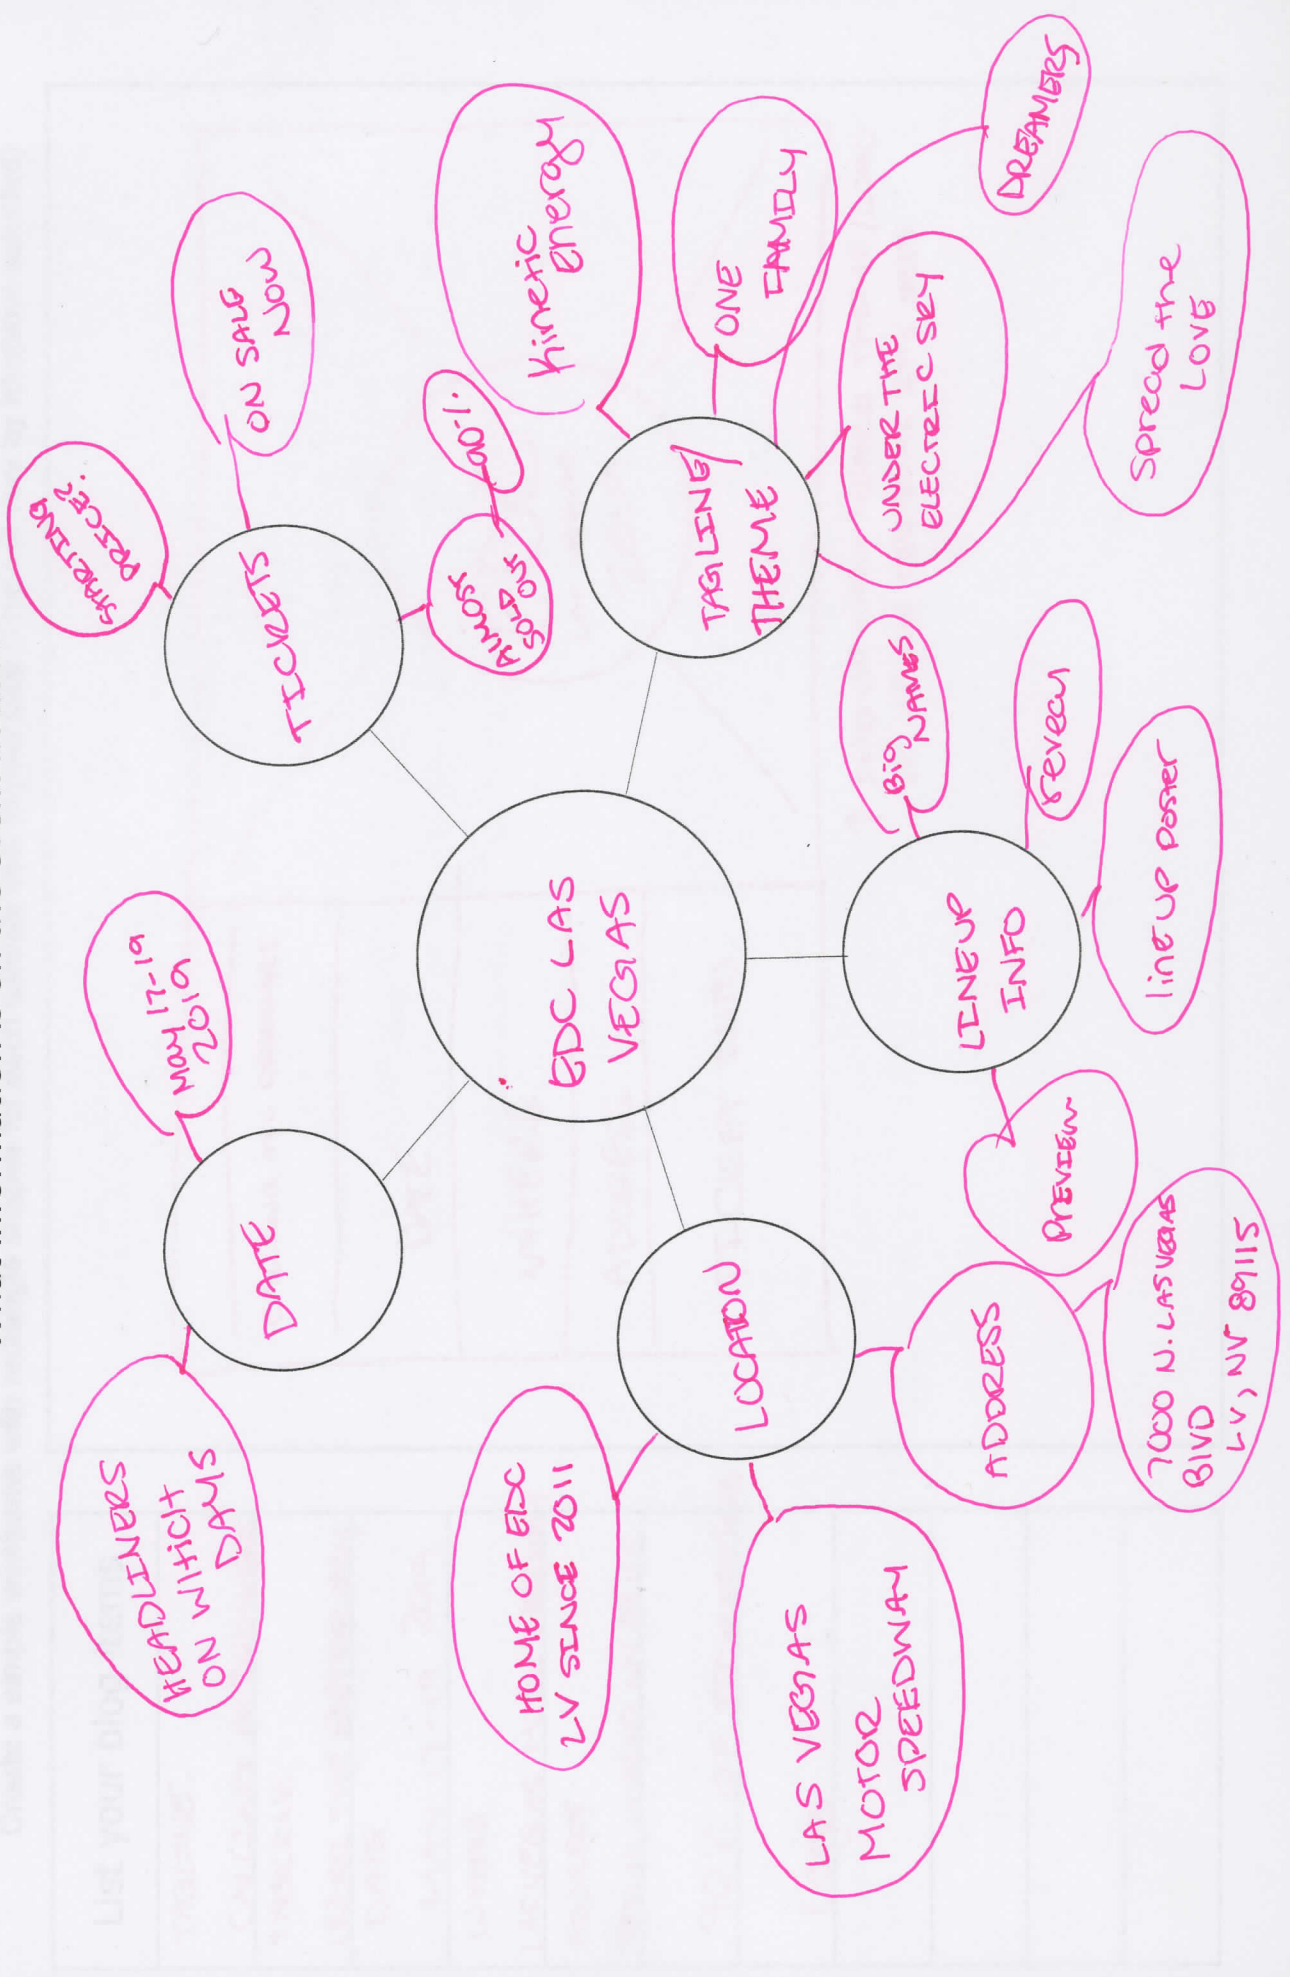 EDC LAS
VEGAS
DATE
HEADLINERS
ON WHICH
DAYS
May 17-19
2019
TICKETS
STARTING
PRICE?
ON SALE
NOW
Almost
SOLD OUT
TAGLINE/
THEME
kinetic
energy
ONE
FAMILY
DREAMERS
UNDER THE
ELECTRIC SKY
Spread the
LOVE
LINEUP
INFO
Big
NAMES
reveal
line UP Poster
PREVIEW
LOCATION
HOME OF EDC
LV SINCE 2011
LAS VEGAS
MOTOR
SPEEDWAY
ADDRESS
7000 N. LAS VEGAS
BLVD
LV, NV 89115